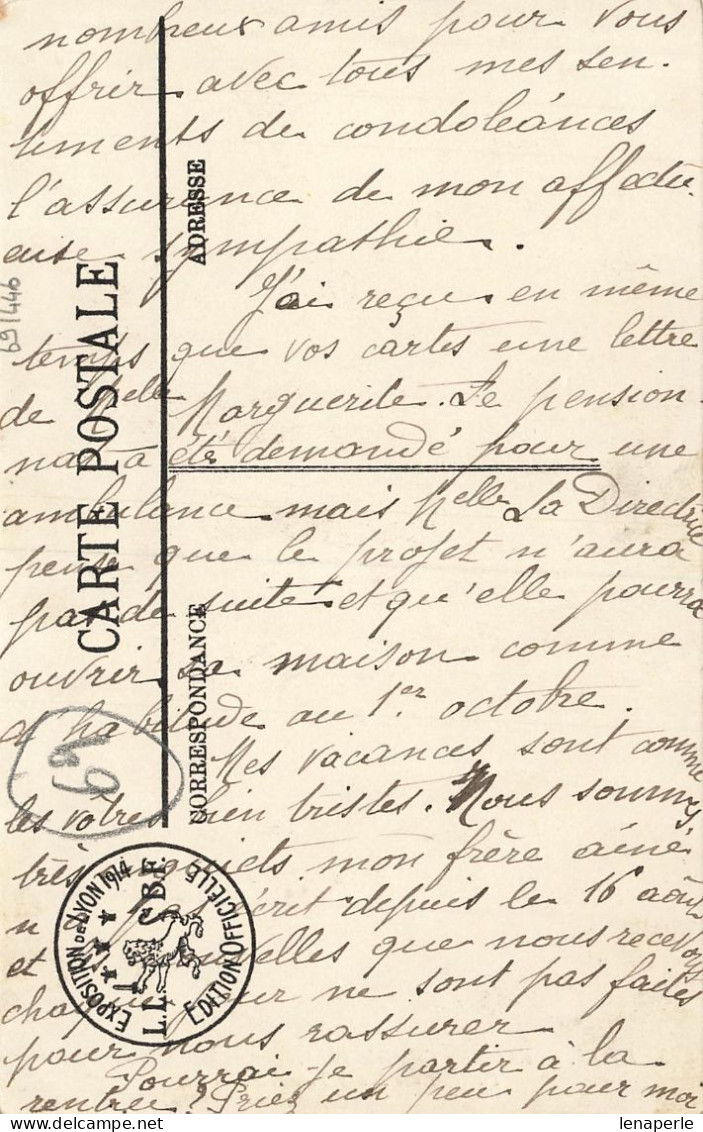 nombreux amis pour vous
offrir avec tous mes sen-
timents de condoléances
l'assurance de mon affectu-
euse sympathie.
J'ai reçu en même
temps que vos cartes une lettre
de Melle Marguerite. Le pension-
nat a été demandé pour une
ambulance mais Melle La Directrice
pense que le projet n'aura
pas de suite et qu'elle pourra
ouvrir sa maison comme
d'habitude au 1er octobre.
Mes vacances sont comme
les vôtres bien tristes. Nous sommes
très inquiets mon frère aîné
n' écrit depuis le 16 août
et nouvelles que nous recevons
chaque jour ne sont pas faites
pour nous rassurer
Pourrai-je partir à la
rentrée? Priez un peu pour moi
CARTE POSTALE
ADRESSE
CORRESPONDANCE
69/446
69
EXPOSITION DE LYON 1914
EDITION OFFICIELLE
L.L
B.F.
lenaperle